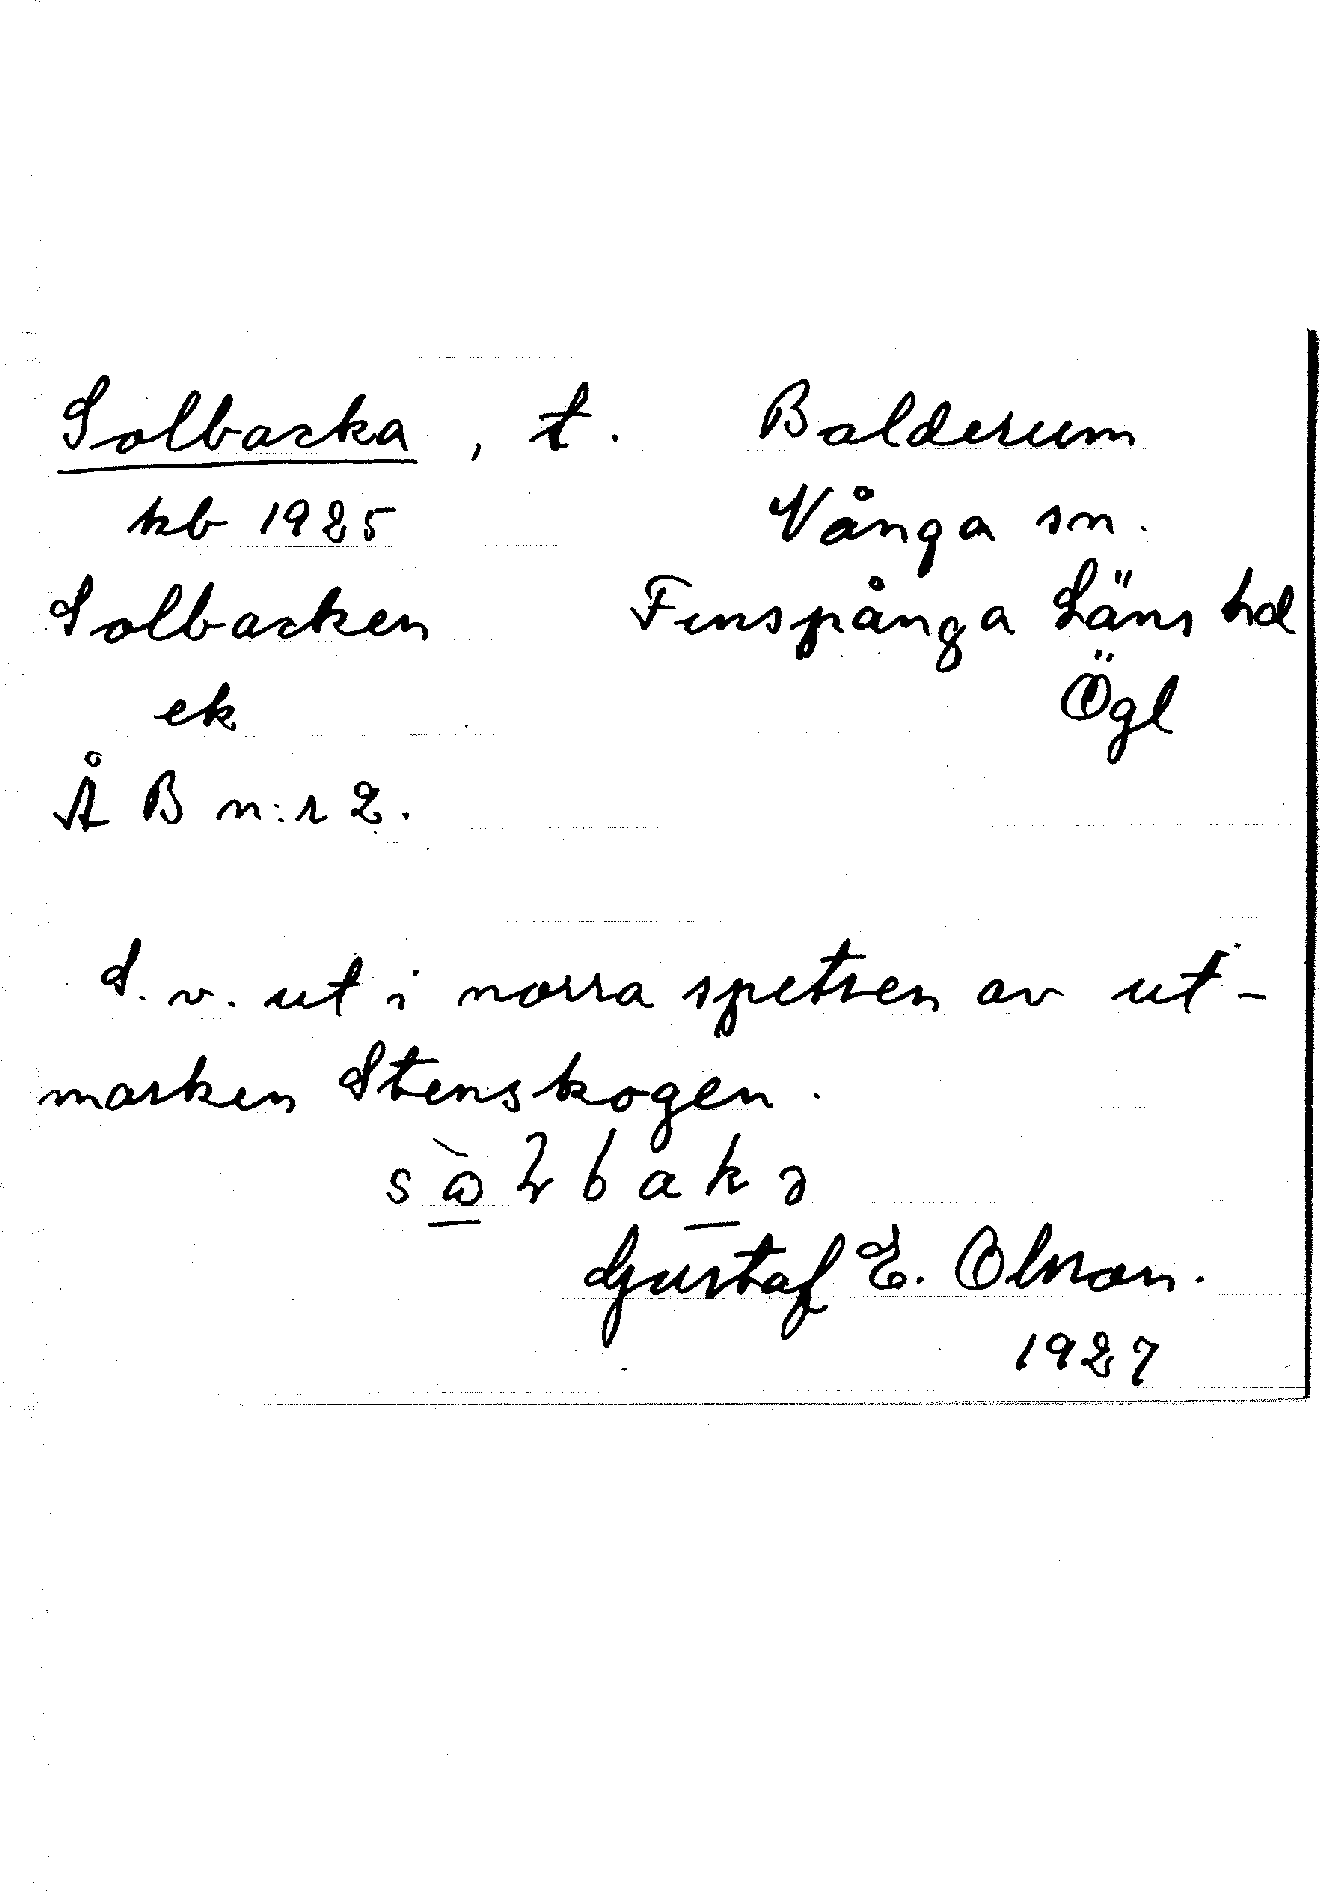 Solbacka, t. Balderum
kb 1925 Vånga sn.
Solbacken Finspånga Läns hd
ek Ögl
Å B n:r 2.
S. v. ut i norra spetsen av ut-
marken Stenskogen.
Gustaf E. Olson.
1927